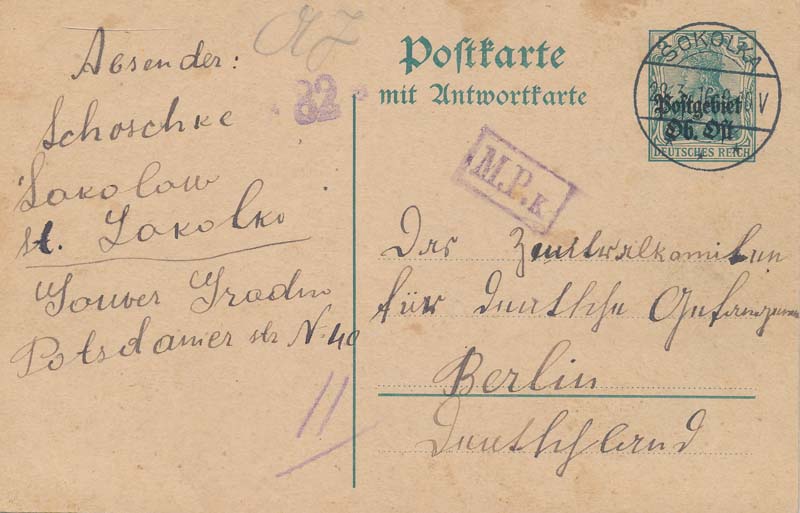 Absender:
Schoschke
Sokolow
st. Sokolko
Gouver Gradno
Potsdamer str N-40
11
AJ
Postkarte
mit Antwortkarte
82
M.P.K.
SOKOLKA
28.3.16 V
5
Postgebiet
Ob. Ost
DEUTSCHES REICH
Das Zentralkomiten
für Deutsche Gefangenen
Berlin
Deutschland